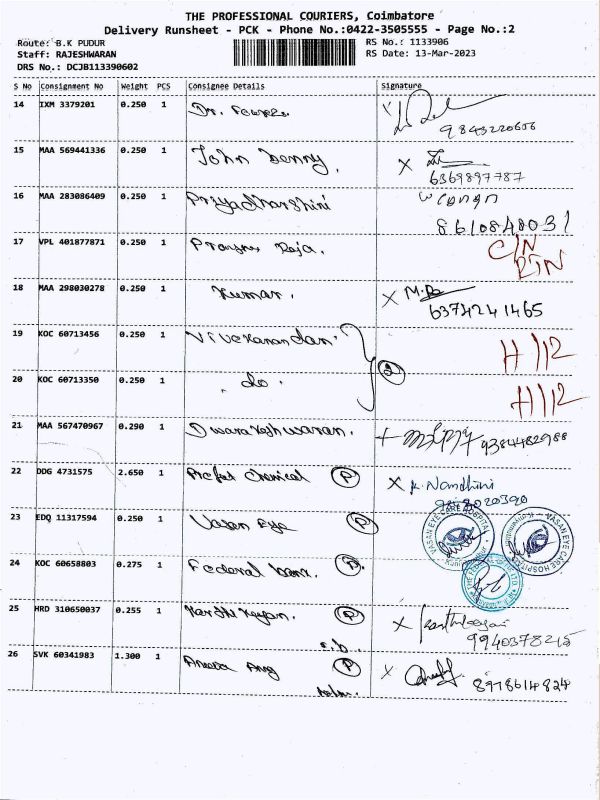 THE PROFESSIONAL COURIERS, Coimbatore
Delivery Runsheet - PCK - Phone No.:0422-3505555 - Page No.:2
Route: B.K PUDUR RS No.: 1133906
Staff: RAJESHWARAN RS Date: 13-Mar-2023
DRS No.: DCJB113390602
S No Consignment No Weight PCS Consignee Details Signature
14 IXM 3379201 0.250 1 Dr.
9843220606
15 MAA 569441336 0.250 1 John Jenny. X
6369897787
16 MAA 283086409 0.250 1 Priyadharshini
8610848031
17 VPL 401877871 0.250 1 Raja. C/N
RTN
18 MAA 298030278 0.250 1 Kumar. X
6374241465
19 KOC 60713456 0.250 1 Vivekanandan
2
20 KOC 60713350 0.250 1 do.
21 MAA 567470967 0.290 1 Dwarakeshwaran. 9384482988
22 DDG 4731575 2.650 1 Chemical P X Nandhini
23 EDQ 11317594 0.250 1 Vasan Eye P
VASAN EYE CARE HOSPITAL
VASAN EYE CARE HOSPITAL
24 KOC 60658803 0.275 1 Federal bank. P
25 HRD 310650037 0.255 1 Karthikeyan. P X
9940378215
26 SVK 60341983 1.300 1 P X
8978614824